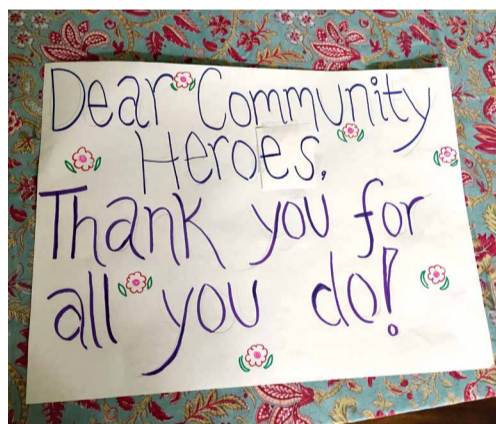 Dear Community
Heroes,
Thank you for
all you do!